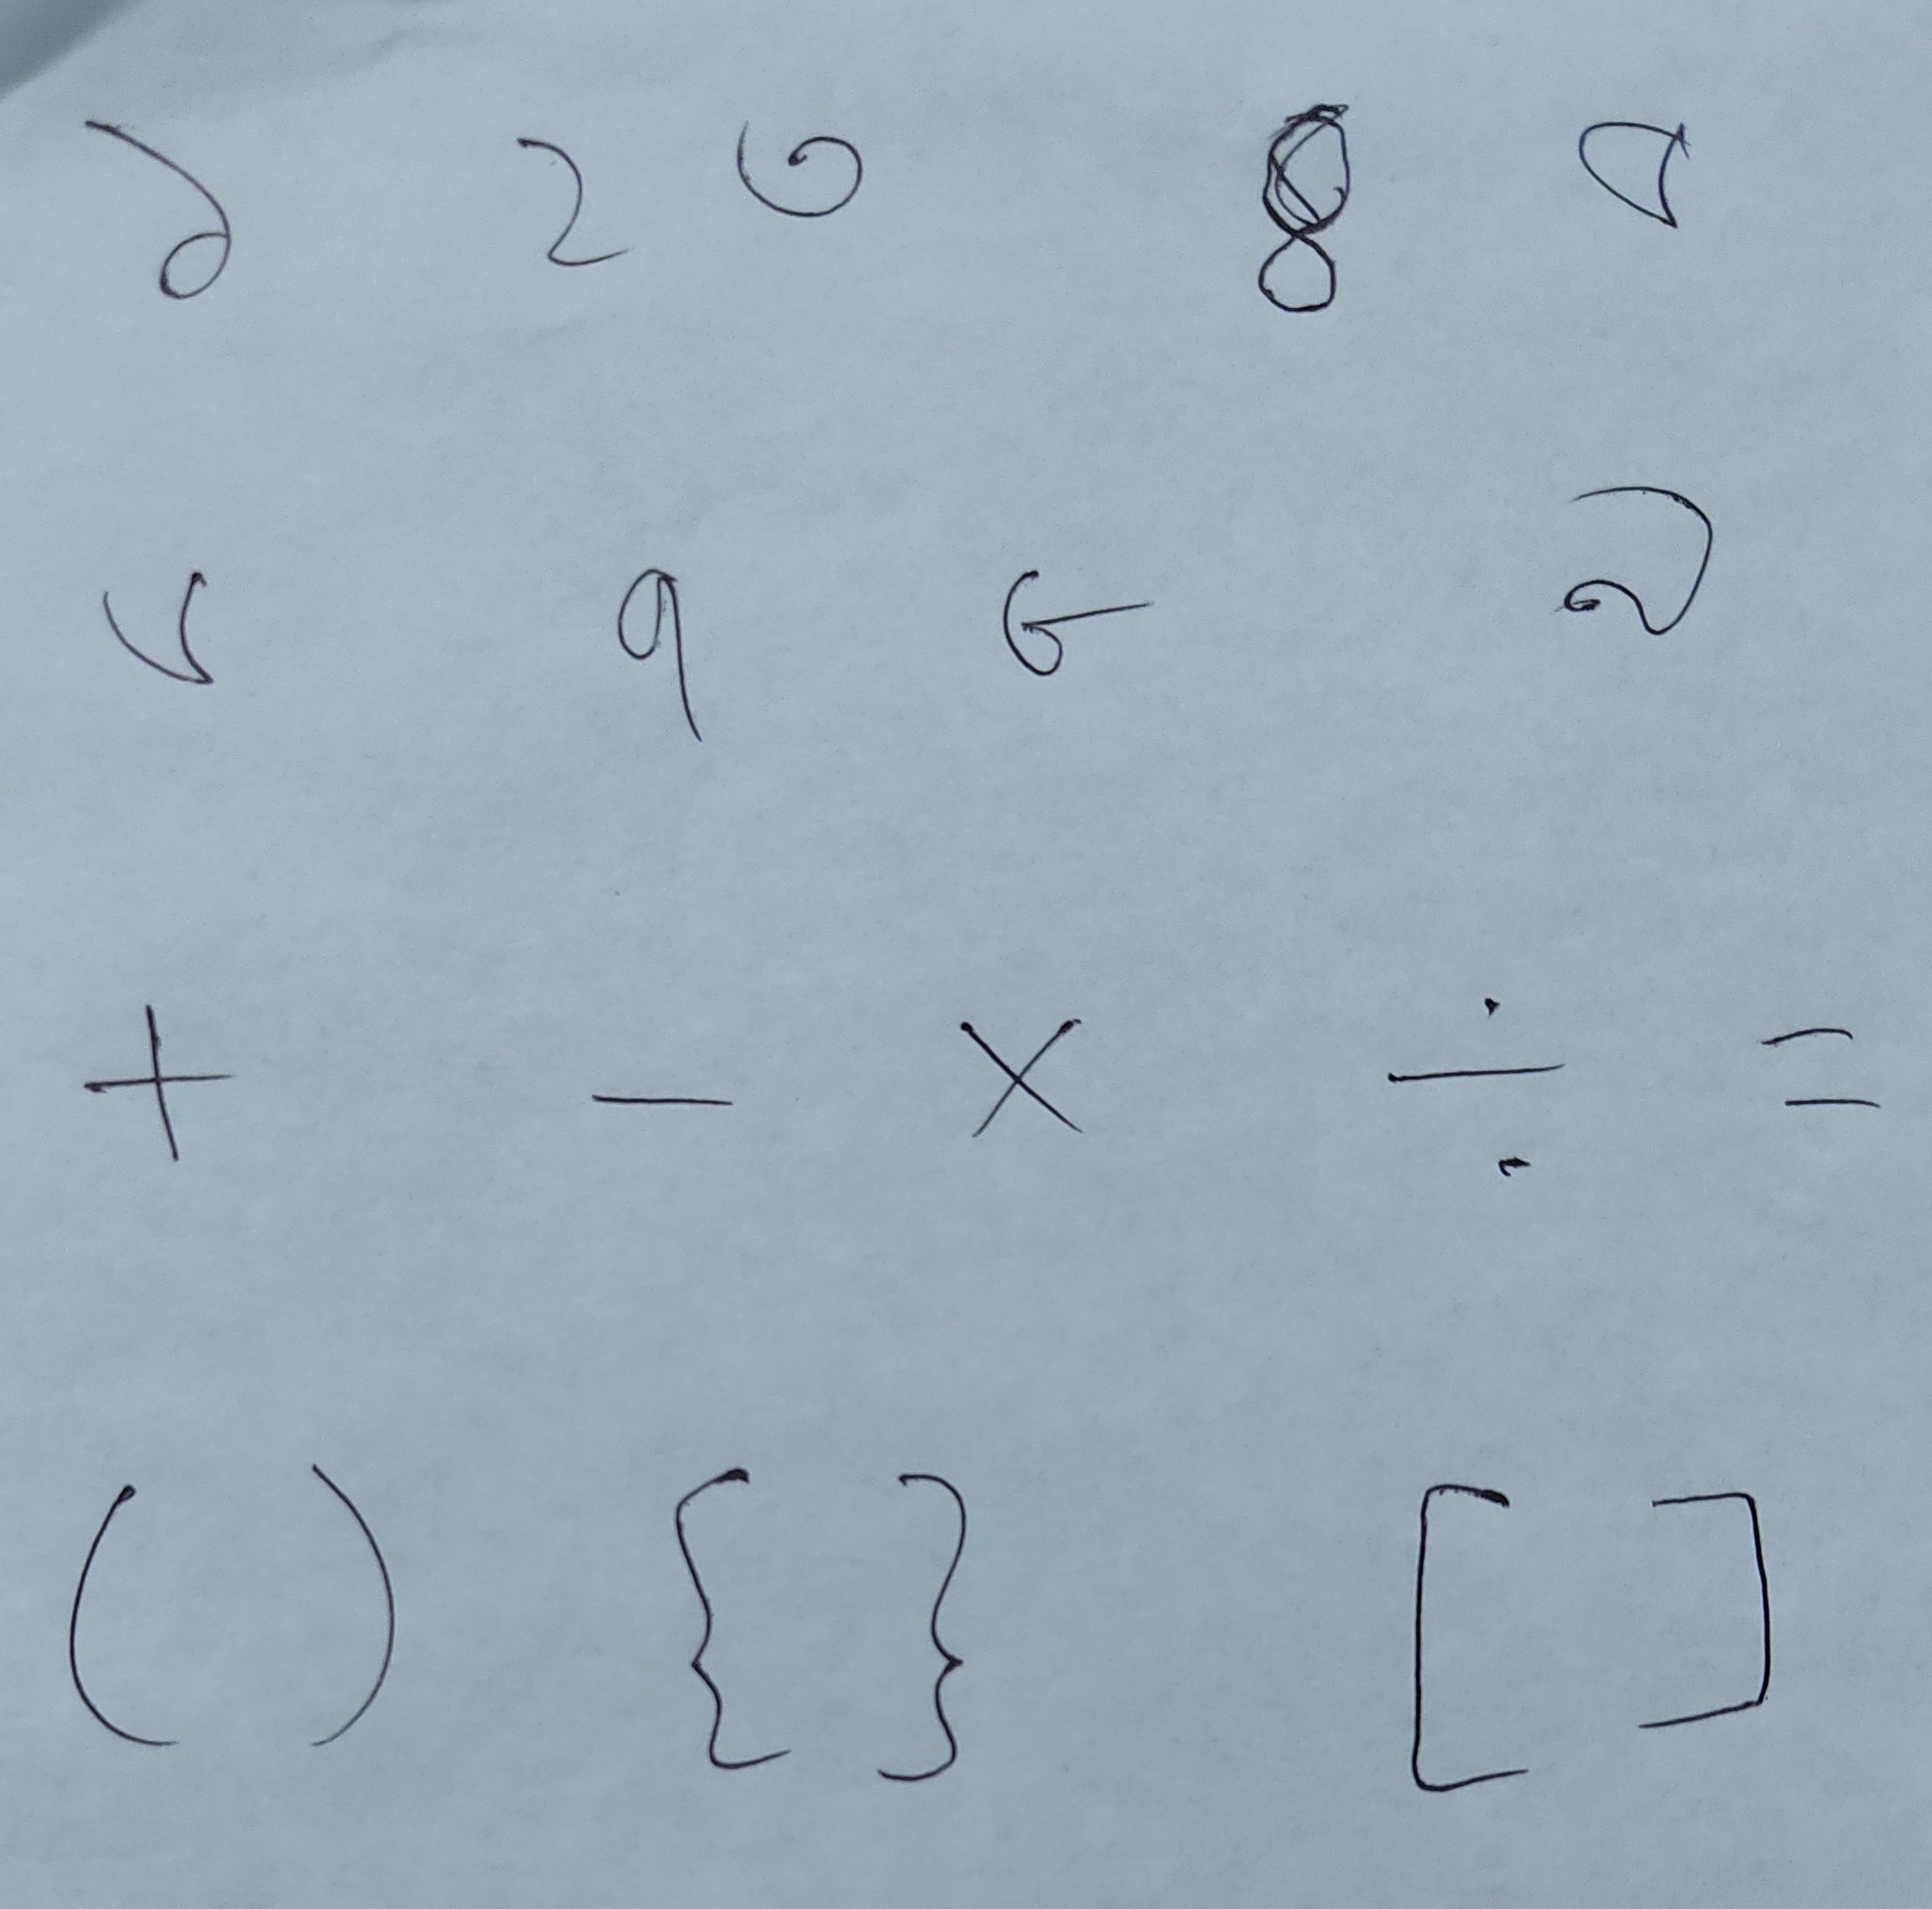 ১ ২ ৩ ৪ ৫
৬ ৭ ৮ ৯
+ − × ÷ =
( ) { } [ ]